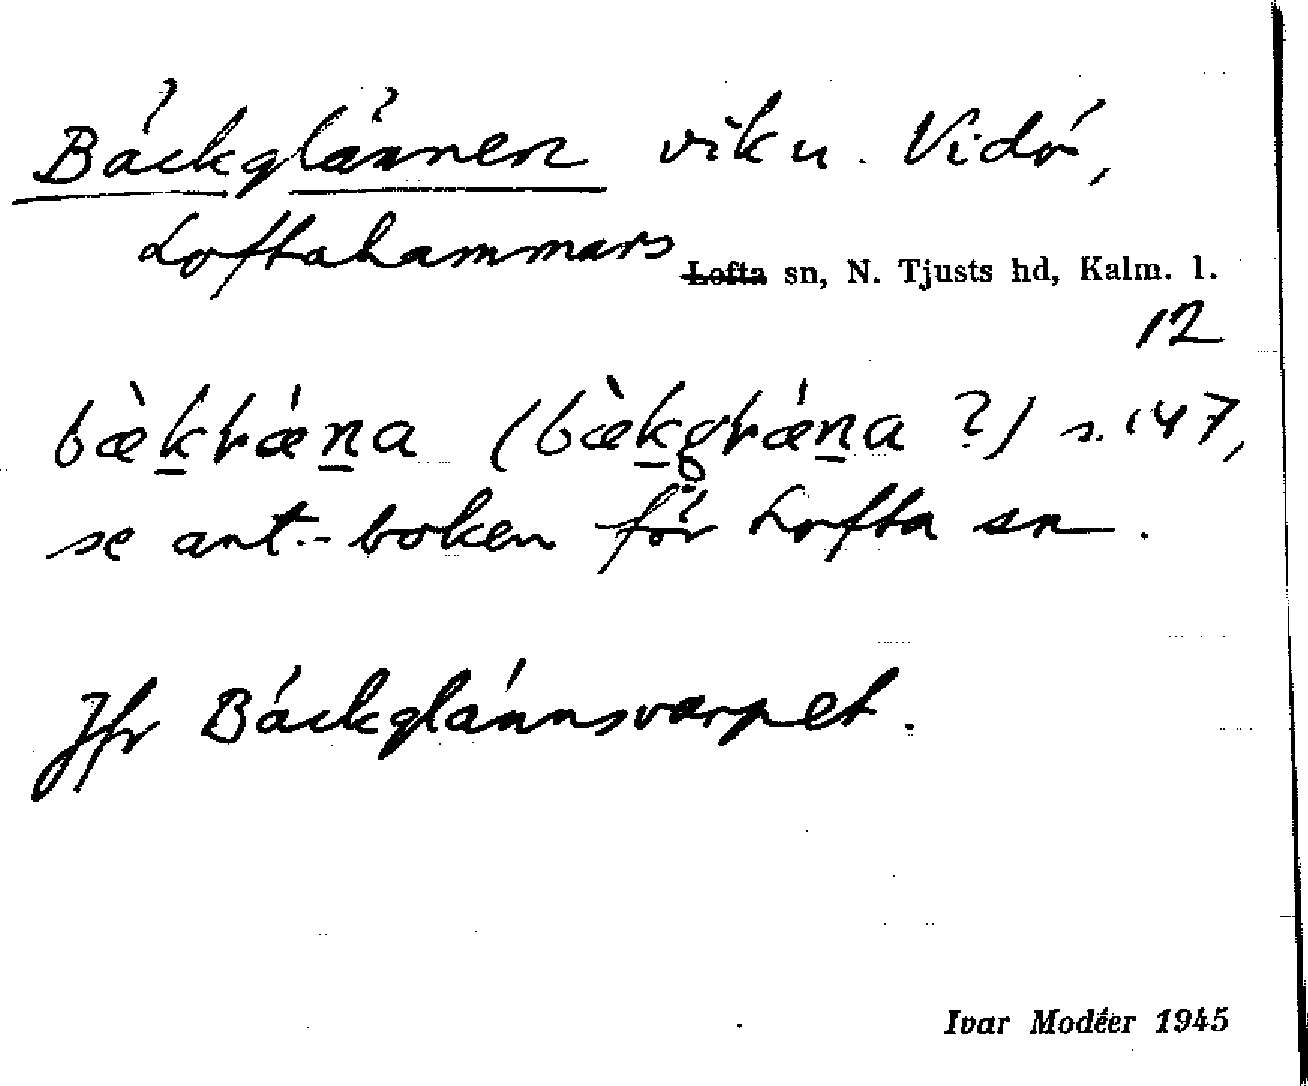 Bäckglännen vik u. Vidö,
Loftahammars Lofta sn, N. Tjusts hd, Kalm. l.
12
bæ̀kɫæ̀na (bæ̀kgɫæ̀na ?) s. 147,
se ant.-boken för Lofta sn.
Jfr Bäckglännsvarpet.
Ivar Modéer 1945